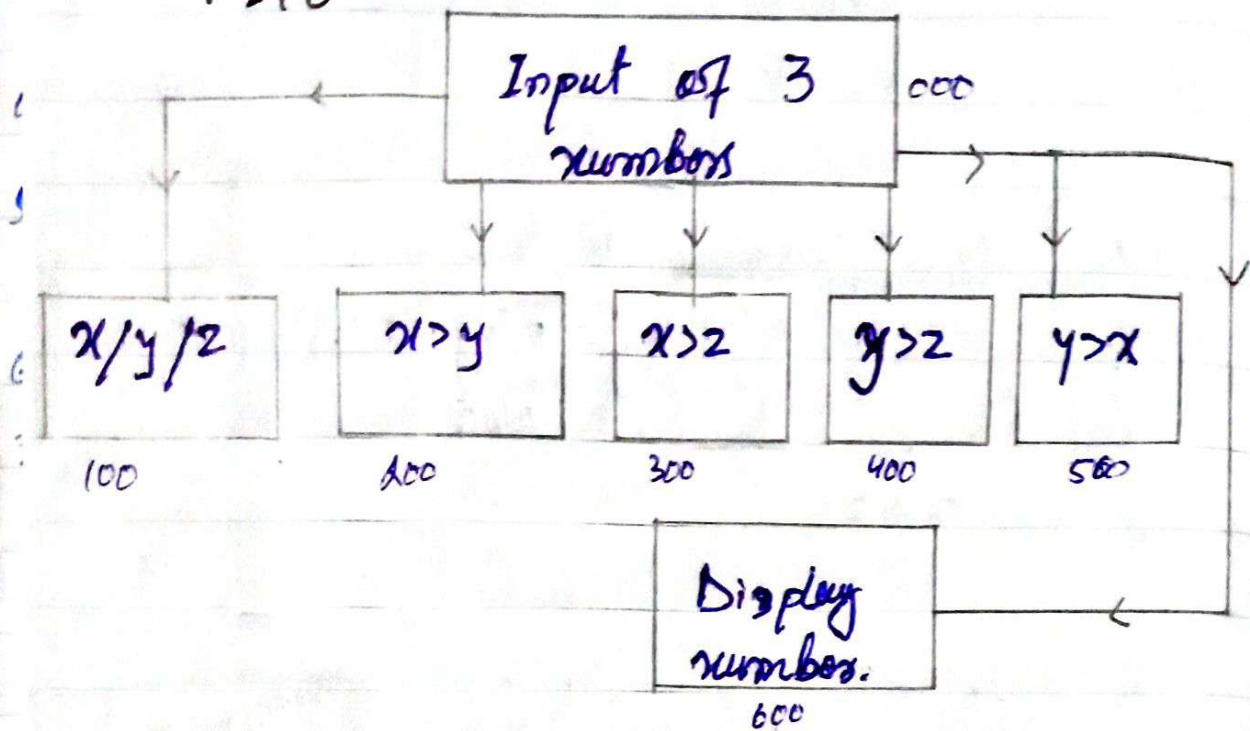 Input of 3
numbers
000
x/y/z
x>y
x>z
y>z
y>x
100
200
300
400
500
Display
number.
600